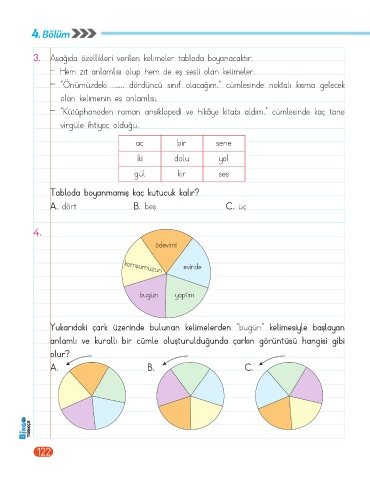 4. Bölüm
3. Aşağıda özellikleri verilen kelimeler tabloda boyanacaktır.
– Hem zıt anlamlısı olup hem de eş sesli olan kelimeler.
– "Önümüzdeki ........ dördüncü sınıf olacağım." cümlesinde noktalı kısma gelecek
olan kelimenin eş anlamlısı.
– "Kütüphaneden roman ansiklopedi ve hikâye kitabı aldım." cümlesinde kaç tane
virgüle ihtiyaç olduğu.
aç bir sene
iki dolu yol
gül kır ses
Tabloda boyanmamış kaç kutucuk kalır?
A. dört B. beş C. üç
4.
ödevimi
komşumuzun evinde
bugün yaptım
Yukarıdaki çark üzerinde bulunan kelimelerden "bugün" kelimesiyle başlayan
anlamlı ve kurallı bir cümle oluşturulduğunda çarkın görüntüsü hangisi gibi
olur?
A. B. C.
BiNGO
TÜRKÇE
122